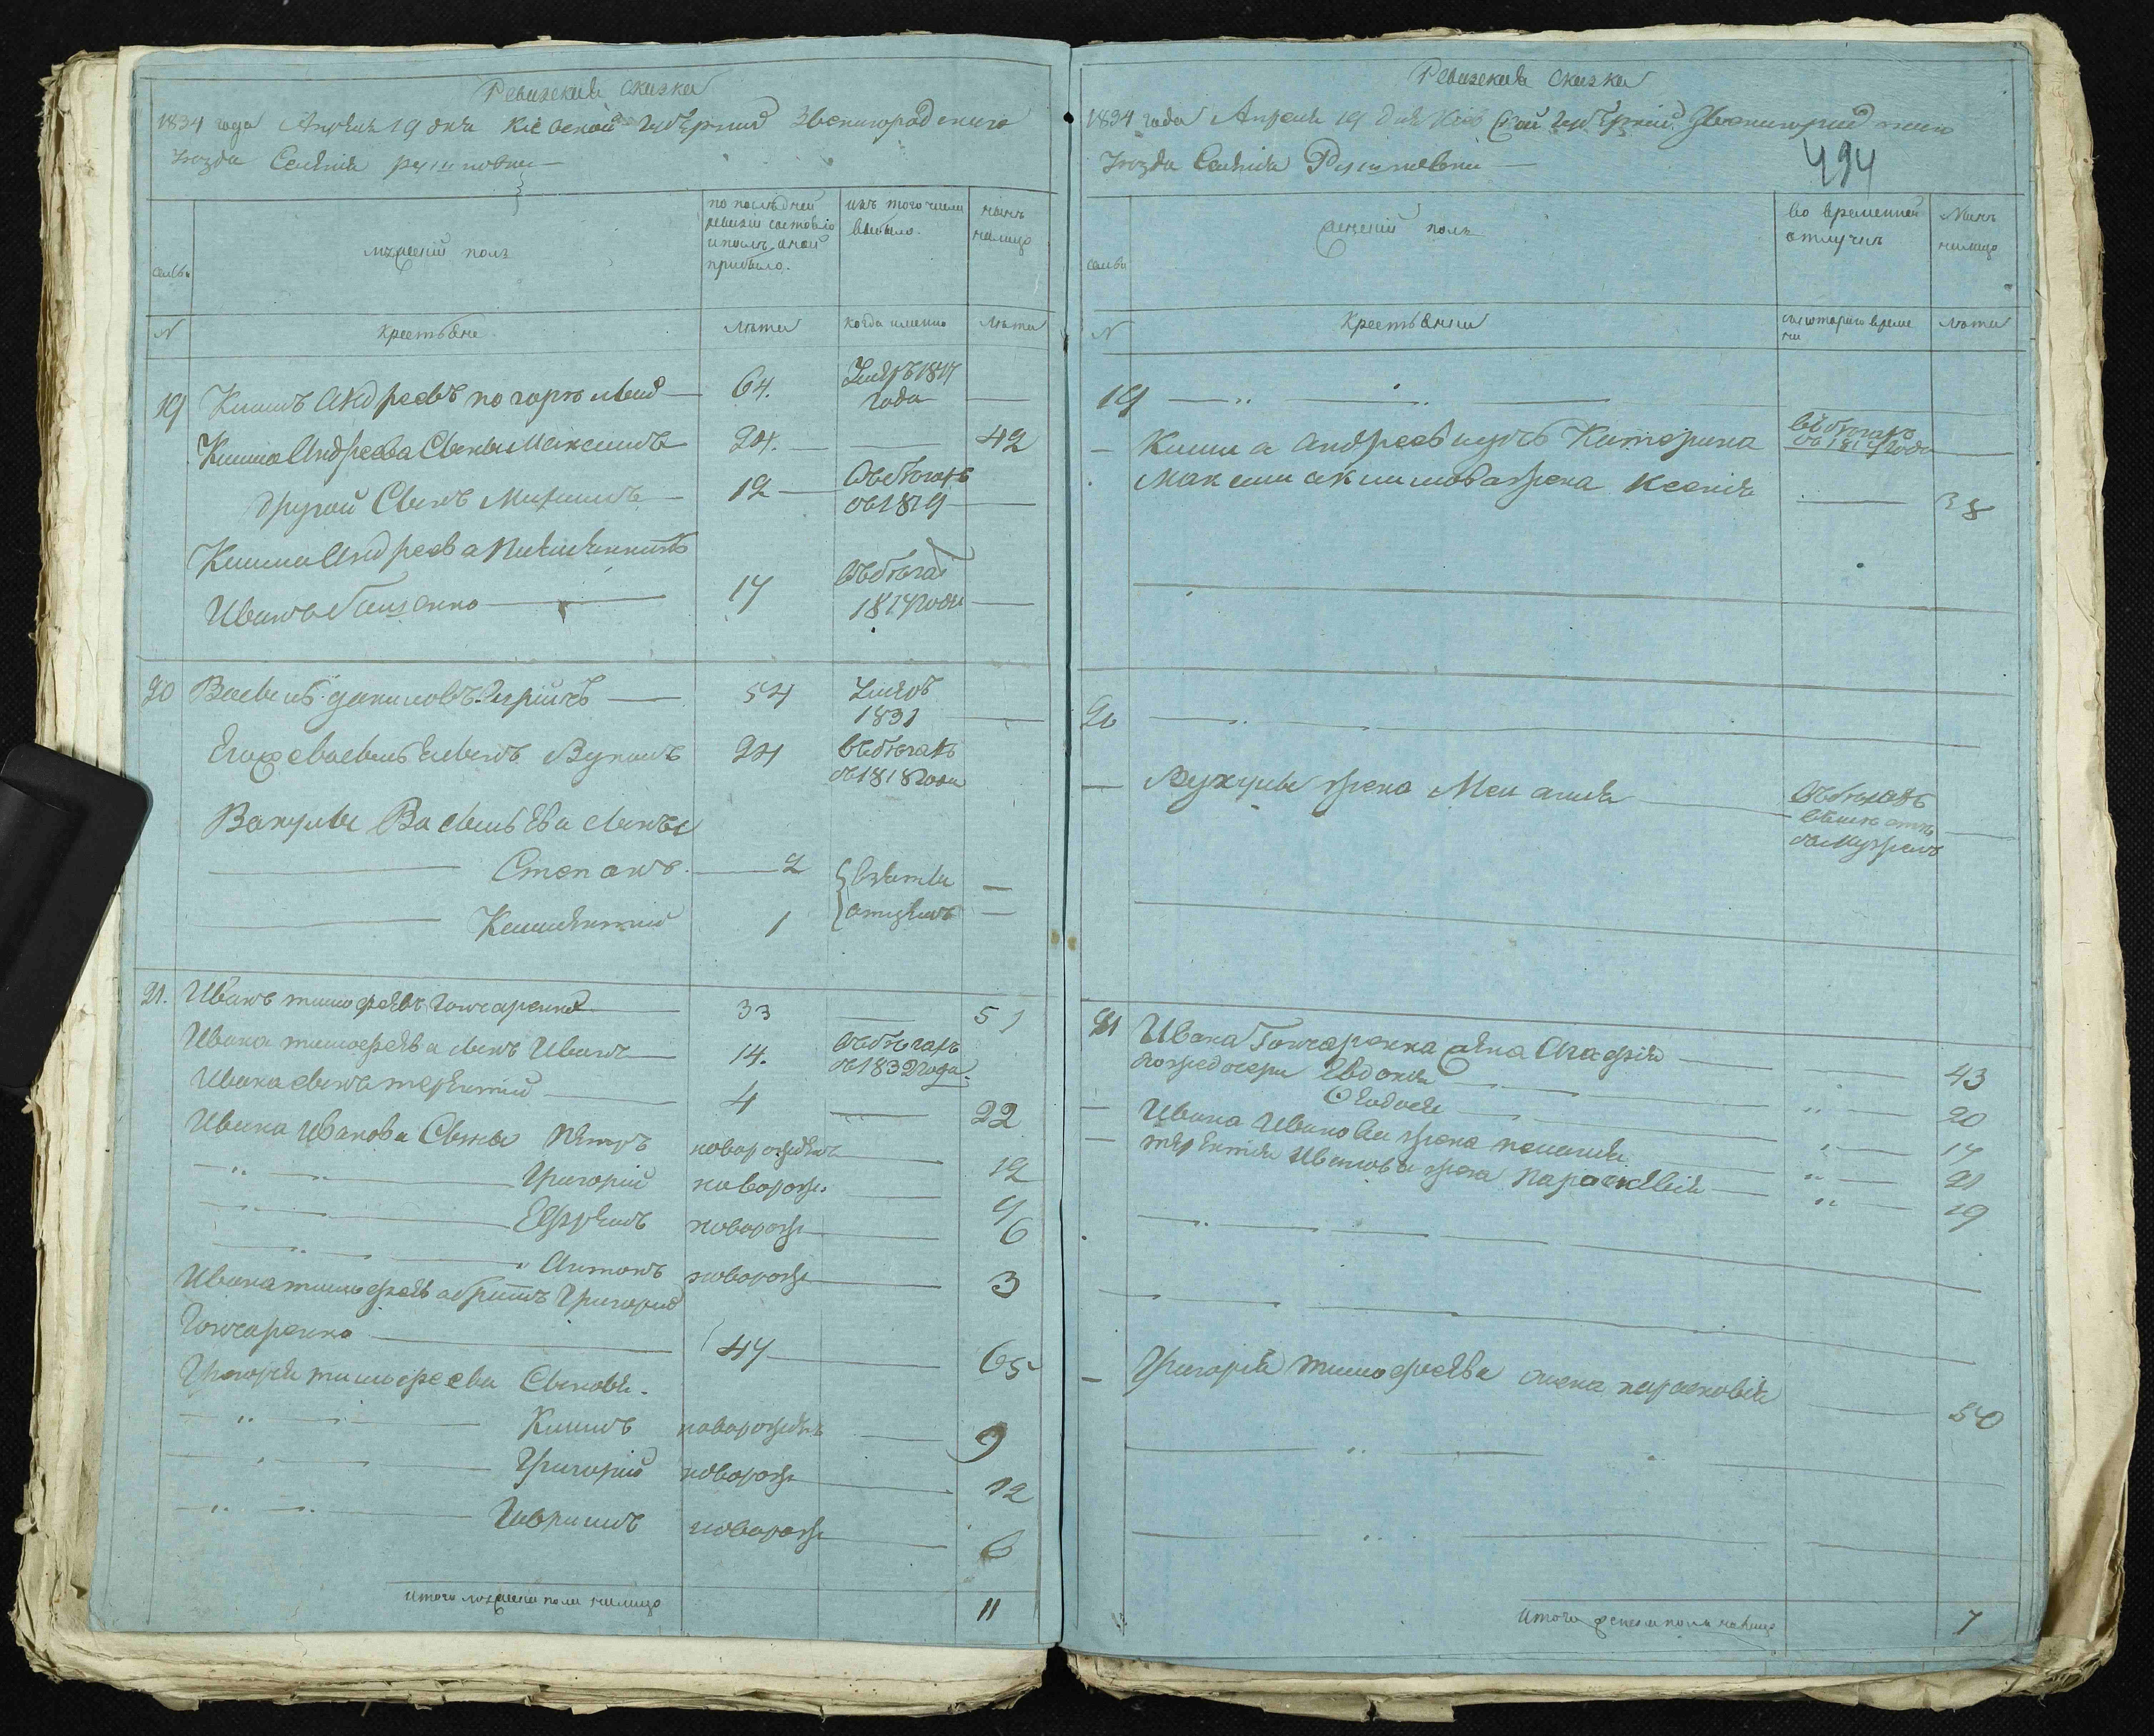 Ревизская сказка
1834 года Апреля 19 дня Киевской губернии Звенигородскаго
уезда Селения
селья
мужеский полъ
по последней
ревизии состояло
и после оной
прибыло.
изъ того числа
выбыло.
ныне
налицо
N
Крестьяне
лета
когда именно
лета
19
Климъ Андреевъ погорелый
64.
Умеръ 1817
года
Клима Андреева Сынъ Максимъ
24.
42
другой Сынъ
12
въ бегахъ
съ 1819
Клима Андреева
Иванъ
17
въ бегах
1817 года
20
Василь даниловъ
54
Умеръ
1831
Его Василь сынъ Вуколъ
24
въ бегахъ
съ 1818 года
Вакулы Васильева сыны
Степанъ
2
взяты
Климентий
1
отцемъ
21.
Иванъ тимофеевъ Гончаренко
33
51
Ивана тимофеева сынъ Иванъ
14.
въ бегахъ
съ 1832 года.
Ивана сынъ терентий
4
22
Ивана Иванова Сыны Петръ
новорожденъ
12
Григорий
новорож.
9
Ефремъ
новорож
6
Антонъ
новорож
3
Ивана тимофеева братъ Григорий
Гончаренко
47
65
Григория тимофеева Сыновья.
Климъ
новорожденъ
9
Григорий
новорож
12
Гавриилъ
новорож
6
Итого мужеска пола налицо
11
Ревизская сказка
1834 года Апреля 19 дня Киевской губернии Звенигородскаго
494
уезда Селения
семьи
женский полъ
во временной
отлучке
Ныне
налицо
N
Крестьянки
съ котораго време
ни
лета
19
Клима Андреева дочь Катерина
въ бегахъ
съ 1817 года
Максима Климова жена Ксения
38
20
Вукулы жена Мелания
въ бегахъ
вместе
съ мужемъ
21
Ивана Гончаренка жена Агафия
43
Его дочери Евдокия
20
Феодосия
17
Ивана Иванова жена пелагия
21
терентия Иванова жена Параскевия
19
Григория тимофеева жена парасковия
50
Итого женска пола налицо
7